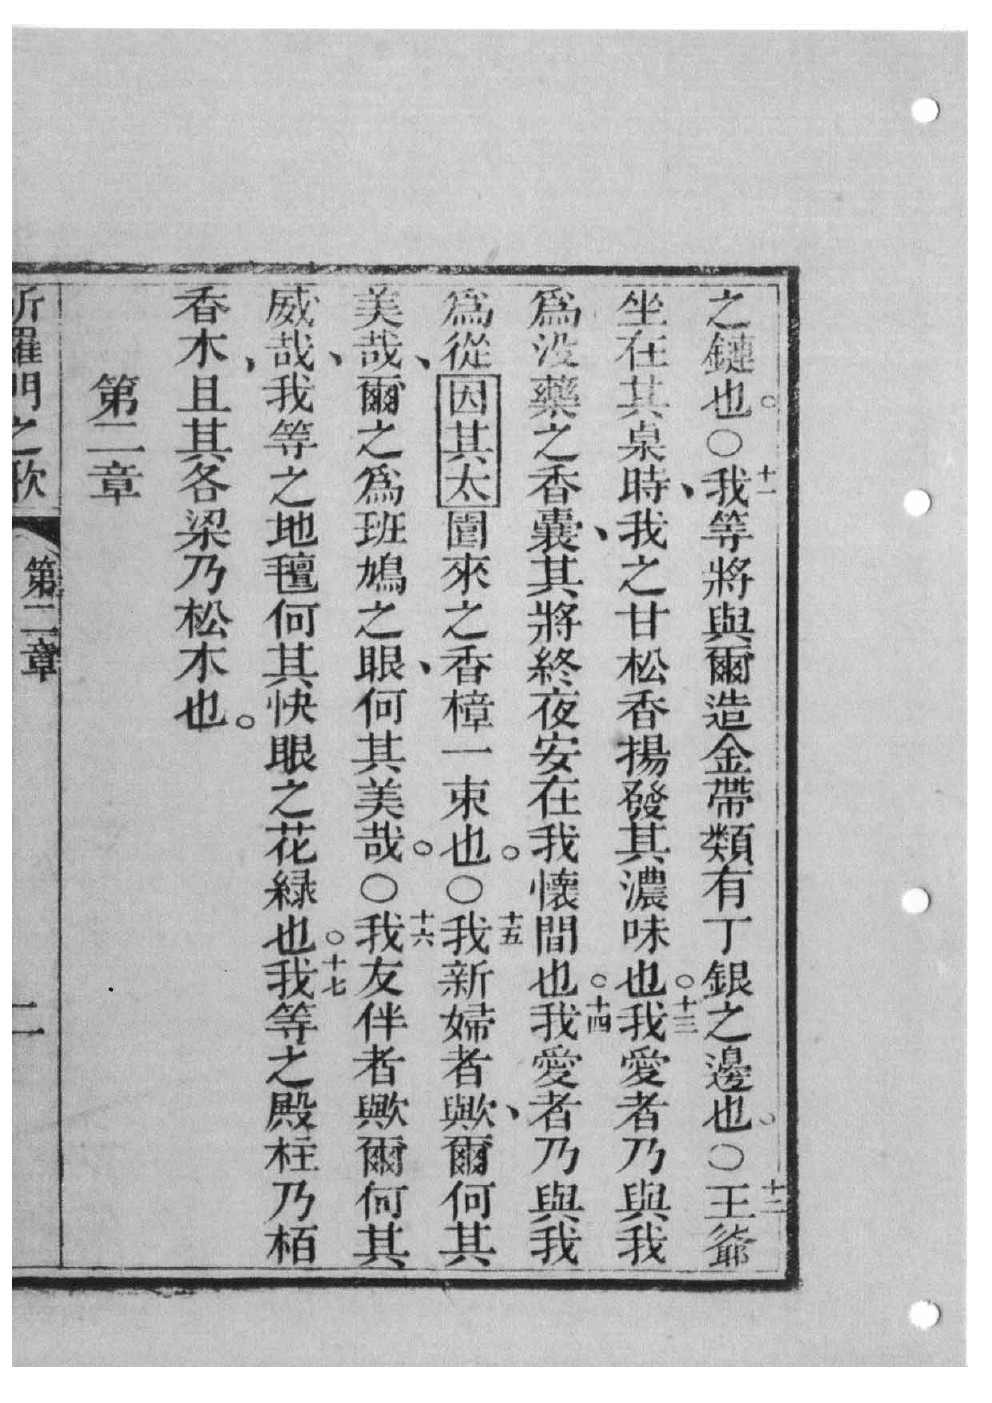 之鏈也。○十一我等將與爾造金帶類有丁銀之邊也。○十二王爺
坐在其桌時、我之甘松香揚發其濃味也。十三我愛者乃與我
爲没藥之香囊、其將終夜安在我懷間也。十四我愛者乃與我
爲從因其太園來之香樟一束也。○十五我新婦者歟、爾何其
美哉、爾之爲班鳩之眼、何其美哉。○十六我友伴者歟爾何其
威哉、我等之地氊何其快眼之花緑也。十七我等之殿柱乃栢
香木、且其各梁乃松木也。
第二章
所羅門之歌 第二章 二